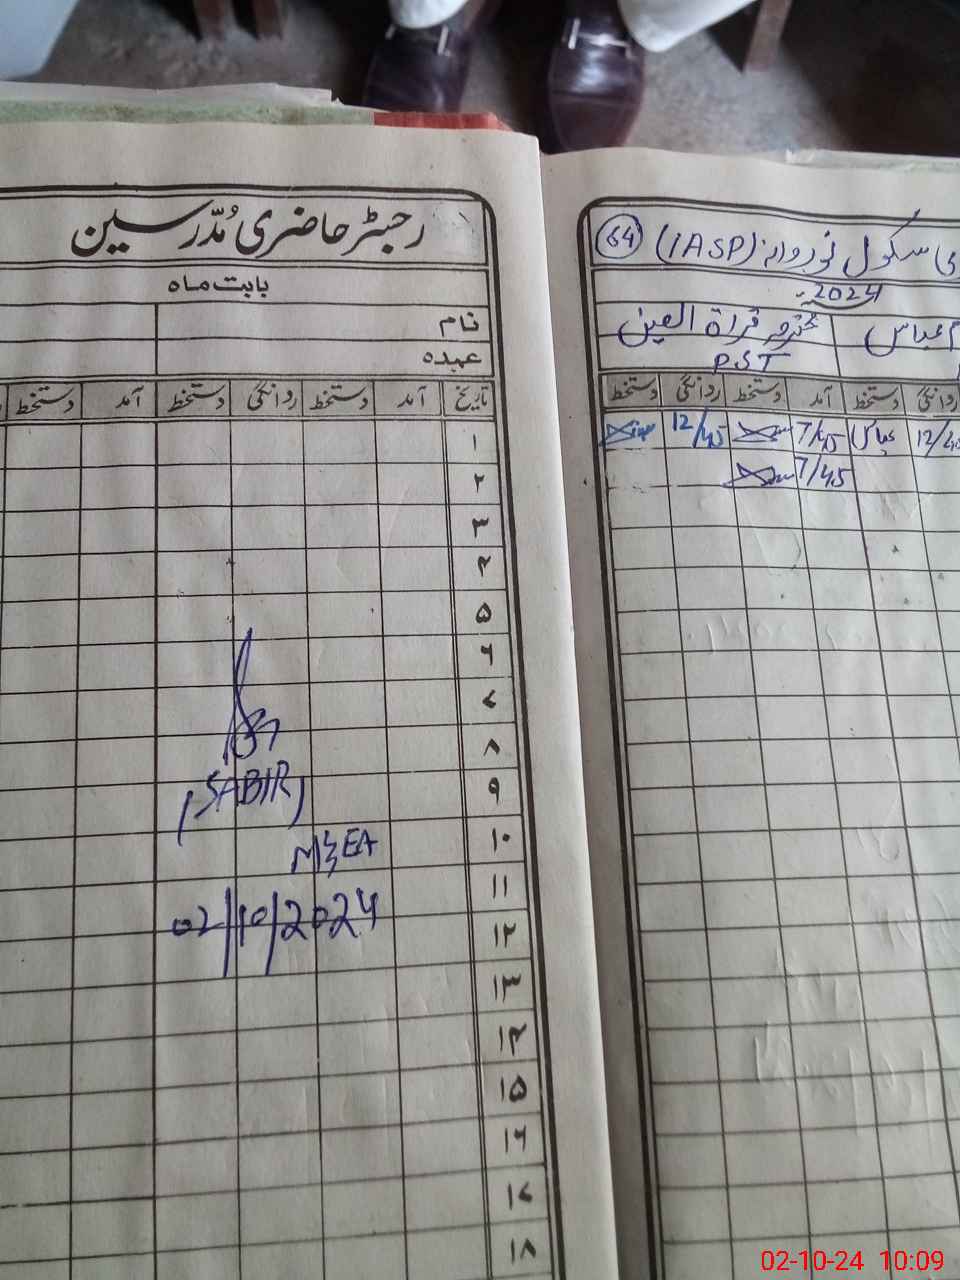 رجسٹر حاضری مُدّرسین
بابت ماہ
نام
عہدہ
تاریخ آمد دستخط ردانگی دستخط آمد دستخط
۱
۲
۳
۴
۵
۶
۷
۸
۹
۱۰
۱۱
۱۲
۱۳
۱۴
۱۵
۱۶
۱۷
۱۸
(SABIR)
M&EA
02/10/2024
سکول نوروانہ (iASP) 64
2024
عباس محترمہ قراۃ العین
P.S.T
ردانگی دستخط آمد دستخط ردانگی دستخط
عباس 7/45 12/45
7/45
02-10-24 10:09